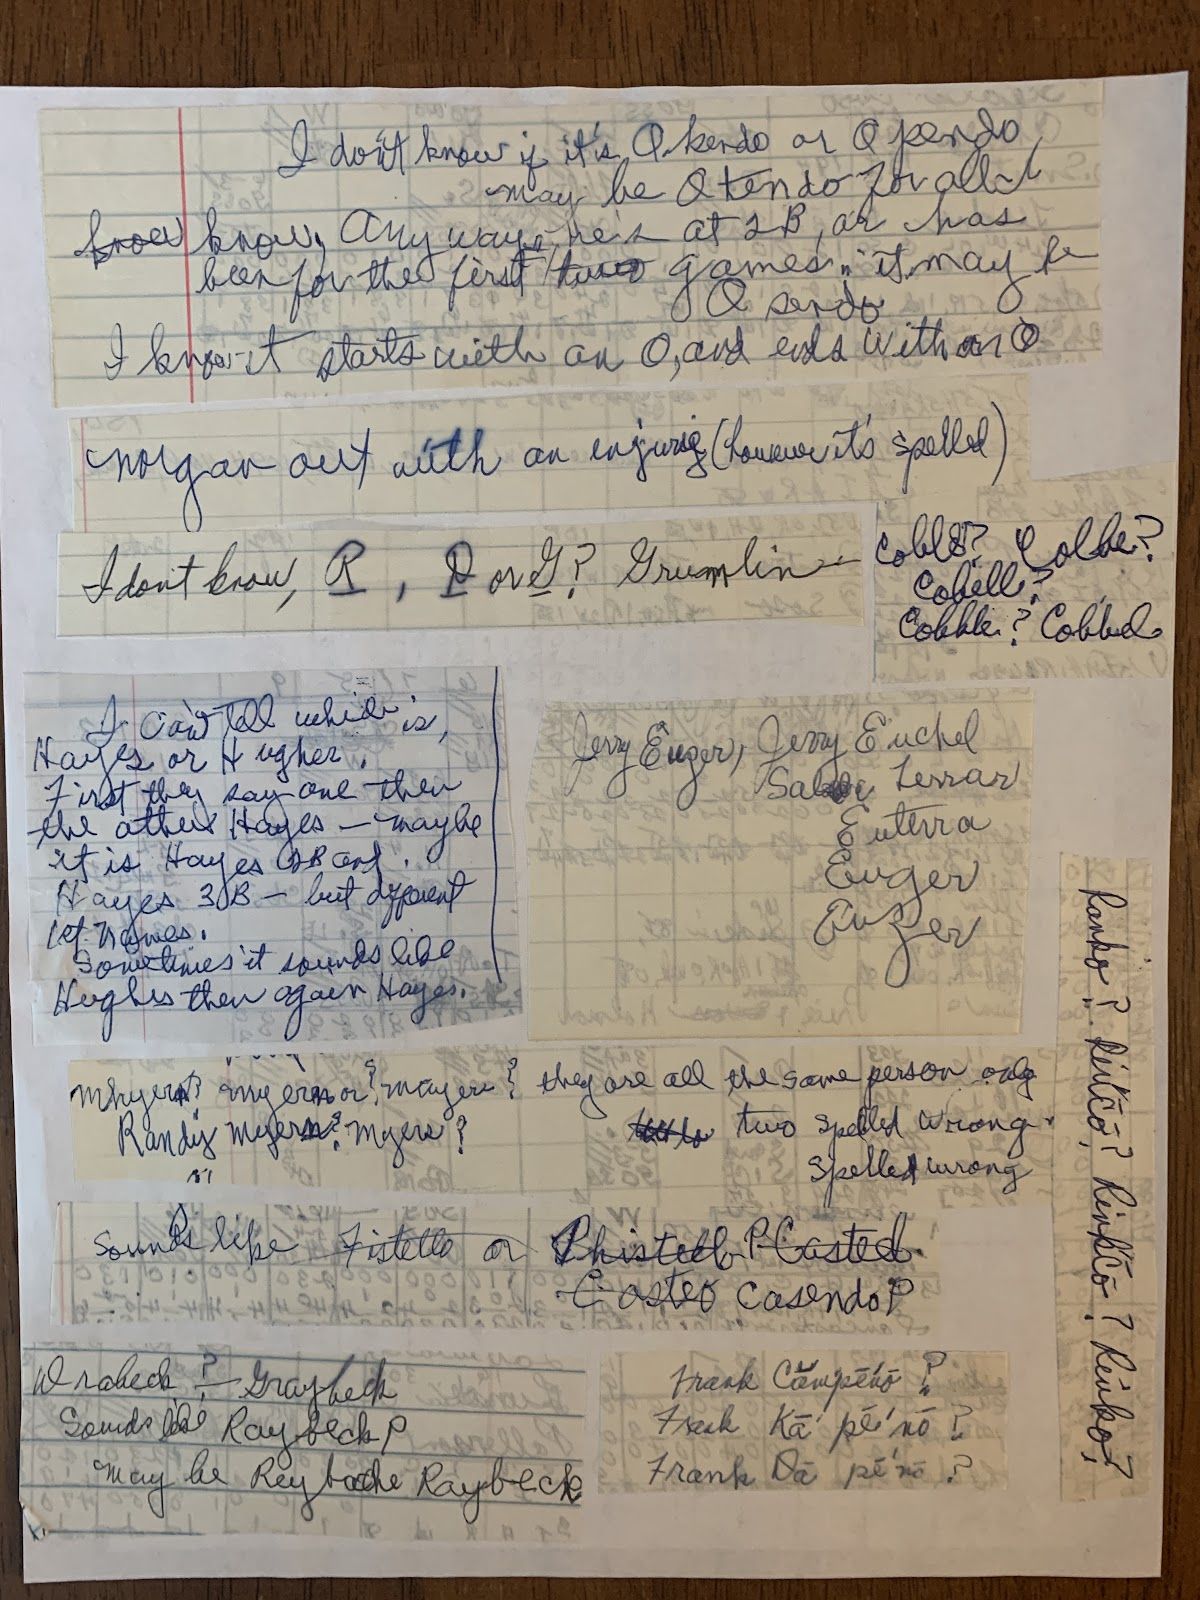 I don't know if it's Okendo or Opendo
may be Otendo for all I
know know. Anyway, he's at 2B, or has
been for the first two games. it may be
Osendo
I know it starts with an O, and ends with an O
Morgan out with an injurig (however it's spelled)
I dont know, P, D or G? Grumlin
Coble? Colbe?
Cobell?
Cobble? Cobbel
I can't tell which is,
Hayes or Hugher.
First they say one then
the other Hayes — maybe
it is Hayes 2B and
Hayes 3B — but different
1st names.
Sometimes it sounds like
Hughes then again Hayes.
Jerry Euger, Jerry Euchel
Terrar
Euterra
Euger
Euzer
Mhyers? Myers or? Mayers? they are all the same person only
Randy Myers? Myers? two spelled wrong.
spelled wrong
Sounds like Fistello or Phistell P Casted
Casteo Casendo P
Wrabeck? — Graybeck
Sounds like Raybeck P
may be Reybache Raybeck
Frank Cămpēnō?
Frank Kā pē nō?
Frank Dā pē nō?
Ranko? Reitcō? Rinkcō? Rinko?